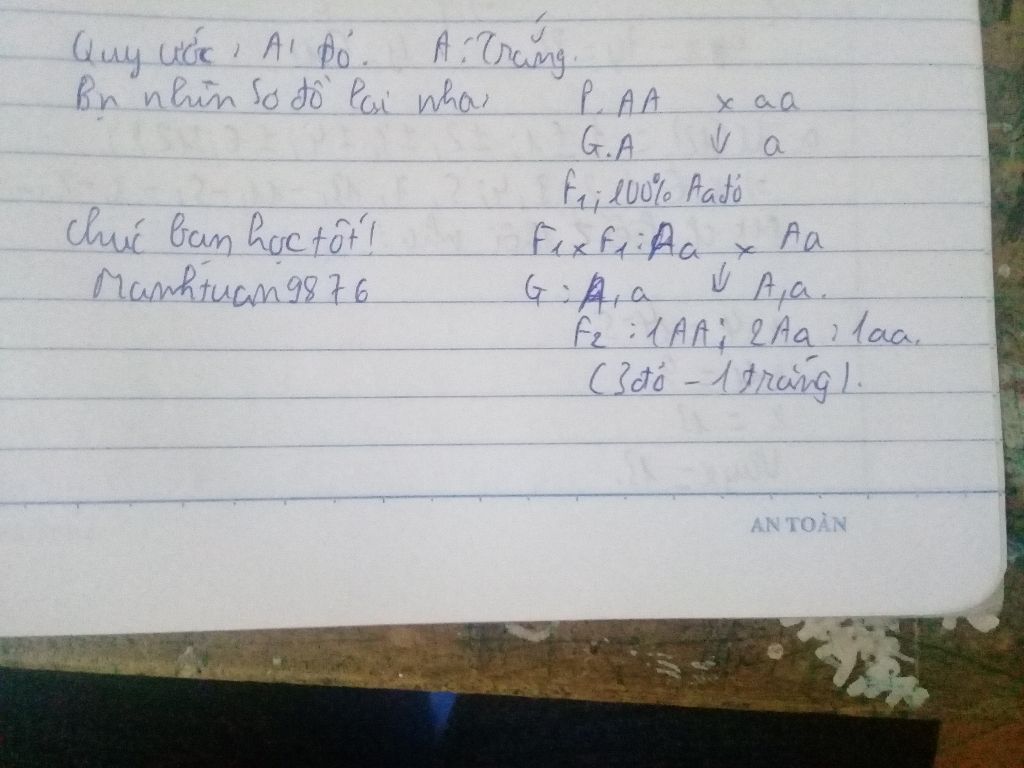 Quy ước: A: Đỏ. A: Trắng.
Bạn nhìn sơ đồ lai nha: P. AA x aa
G. A ↓ a
F₁: 100% Aa đỏ
Chúc bạn học tốt! F₁ x F₁: Aa x Aa
Manhtuan9876 G: A, a ↓ A, a.
F₂: 1AA: 2Aa: 1aa.
(3 đỏ - 1 trắng).
AN TOÀN